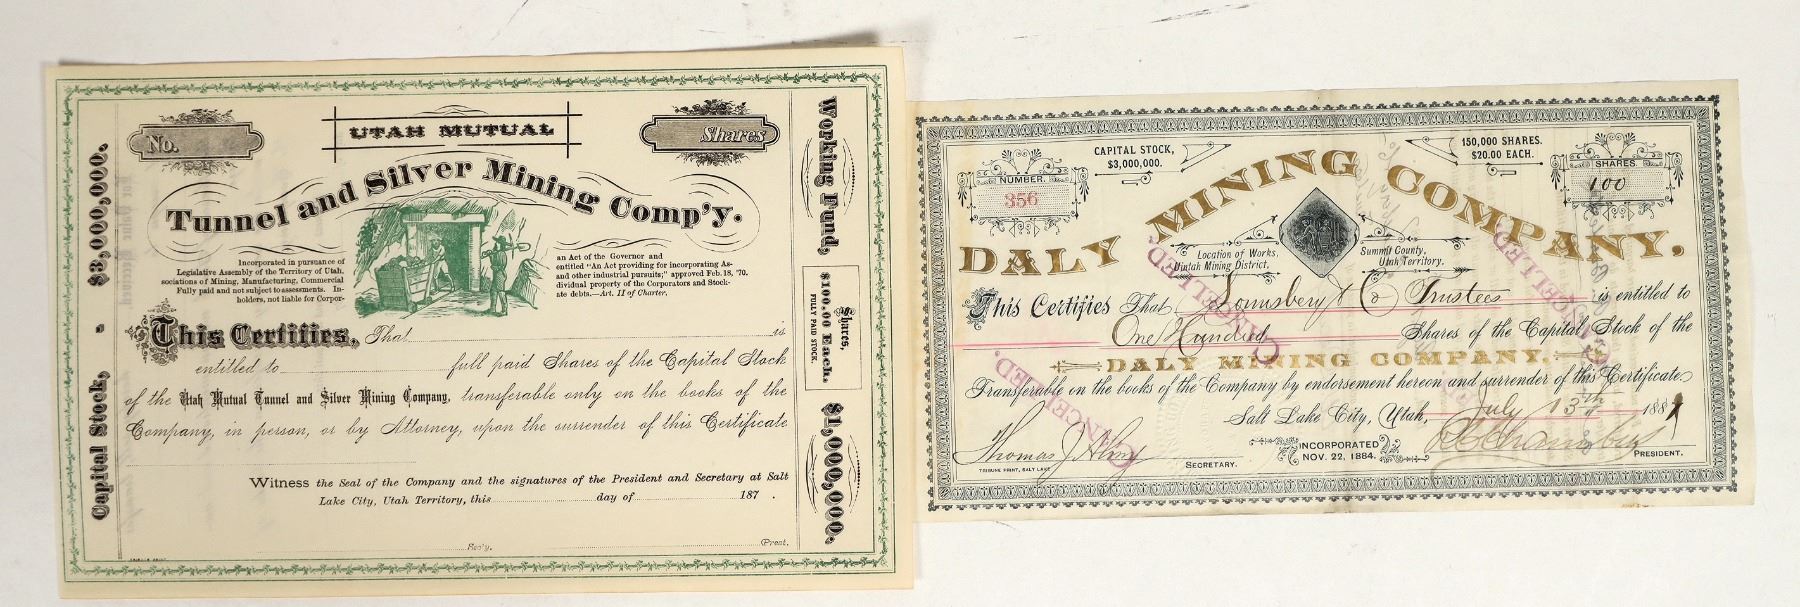 No.
UTAH MUTUAL
Shares
Tunnel and Silver Mining Comp'y.
Incorporated in pursuance of
Legislative Assembly of the Territory of Utah,
sociations of Mining, Manufacturing, Commercial
Fully paid and not subject to assessments. In-
holders, not liable for Corpor-
an Act of the Governor and
entitled "An Act providing for incorporating As-
and other industrial pursuits;" approved Feb. 18, '70.
dividual property of the Corporators and Stock-
ate debts.—Art. II of Charter.
This Certifies, That is
entitled to full paid Shares of the Capital Stock
of the Utah Mutual Tunnel and Silver Mining Company, transferable only on the books of the
Company, in person, or by Attorney, upon the surrender of this Certificate
Witness the Seal of the Company and the signatures of the President and Secretary at Salt
Lake City, Utah Territory, this day of 187 .
Sec'y. Prest.
Capital Stock, - $3,000,000.
Working Fund, $1,000,000.
Shares, $100.00 Each.
FULLY PAID STOCK.
NUMBER.
356
CAPITAL STOCK,
$3,000,000.
150,000 SHARES.
$20.00 EACH.
SHARES.
100
DALY MINING COMPANY,
Location of Works,
Uintah Mining District,
Summit County,
Utah Territory.
This Certifies That Lounsbery & Co Trustees is entitled to
One Hundred Shares of the Capital Stock of the
DALY MINING COMPANY,
Transferable on the books of the Company by endorsement hereon and surrender of this Certificate
Salt Lake City, Utah, July 13th 188
INCORPORATED
NOV. 22, 1884.
Thomas
SECRETARY.
PRESIDENT.
TRIBUNE PRINT, SALT LAKE
CANCELLED.
CANCELLED.
CANCELLED.